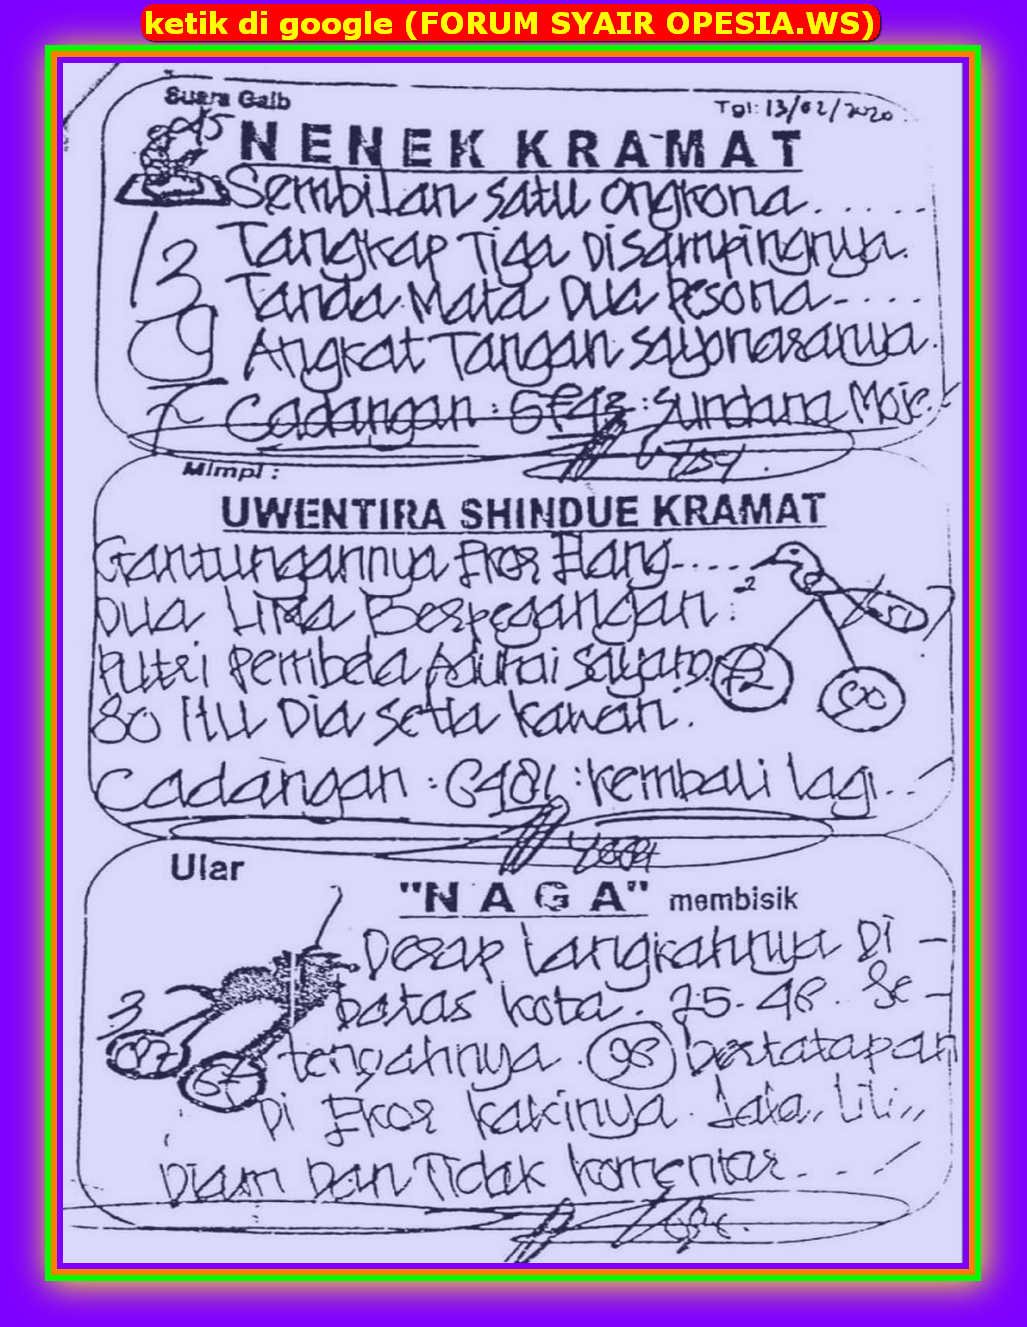 ketik di google (FORUM SYAIR OPESIA.WS)
Suara Gaib
Tgl: 13/02/2020
NENEK KRAMAT
Sembilan satu ongkona......
Tangkap Tiga Disampingnya.
Tanda Mata Dua Pesona-....
Angkat Tangan Sayonaranya.
Cadangan : : Sundana Moje..
Mimpi :
UWENTIRA SHINDUE KRAMAT
Gantungannya Ekor Elang.....
Dua Lima Berpegangan :
Putri Pembela Aduhai Sayang.
80 Itu Dia Setia kawan.
Cadangan : : Kembali lagi...
72
Ular
"NAGA" membisik
Derap Langkahnya Di -
batas kota. 25-48. Se -
tengahnya. 98 bertatapan
Di Ekor kakinya. Lala,, Lili,,
Diam Dan Tidak komentar....
3
67